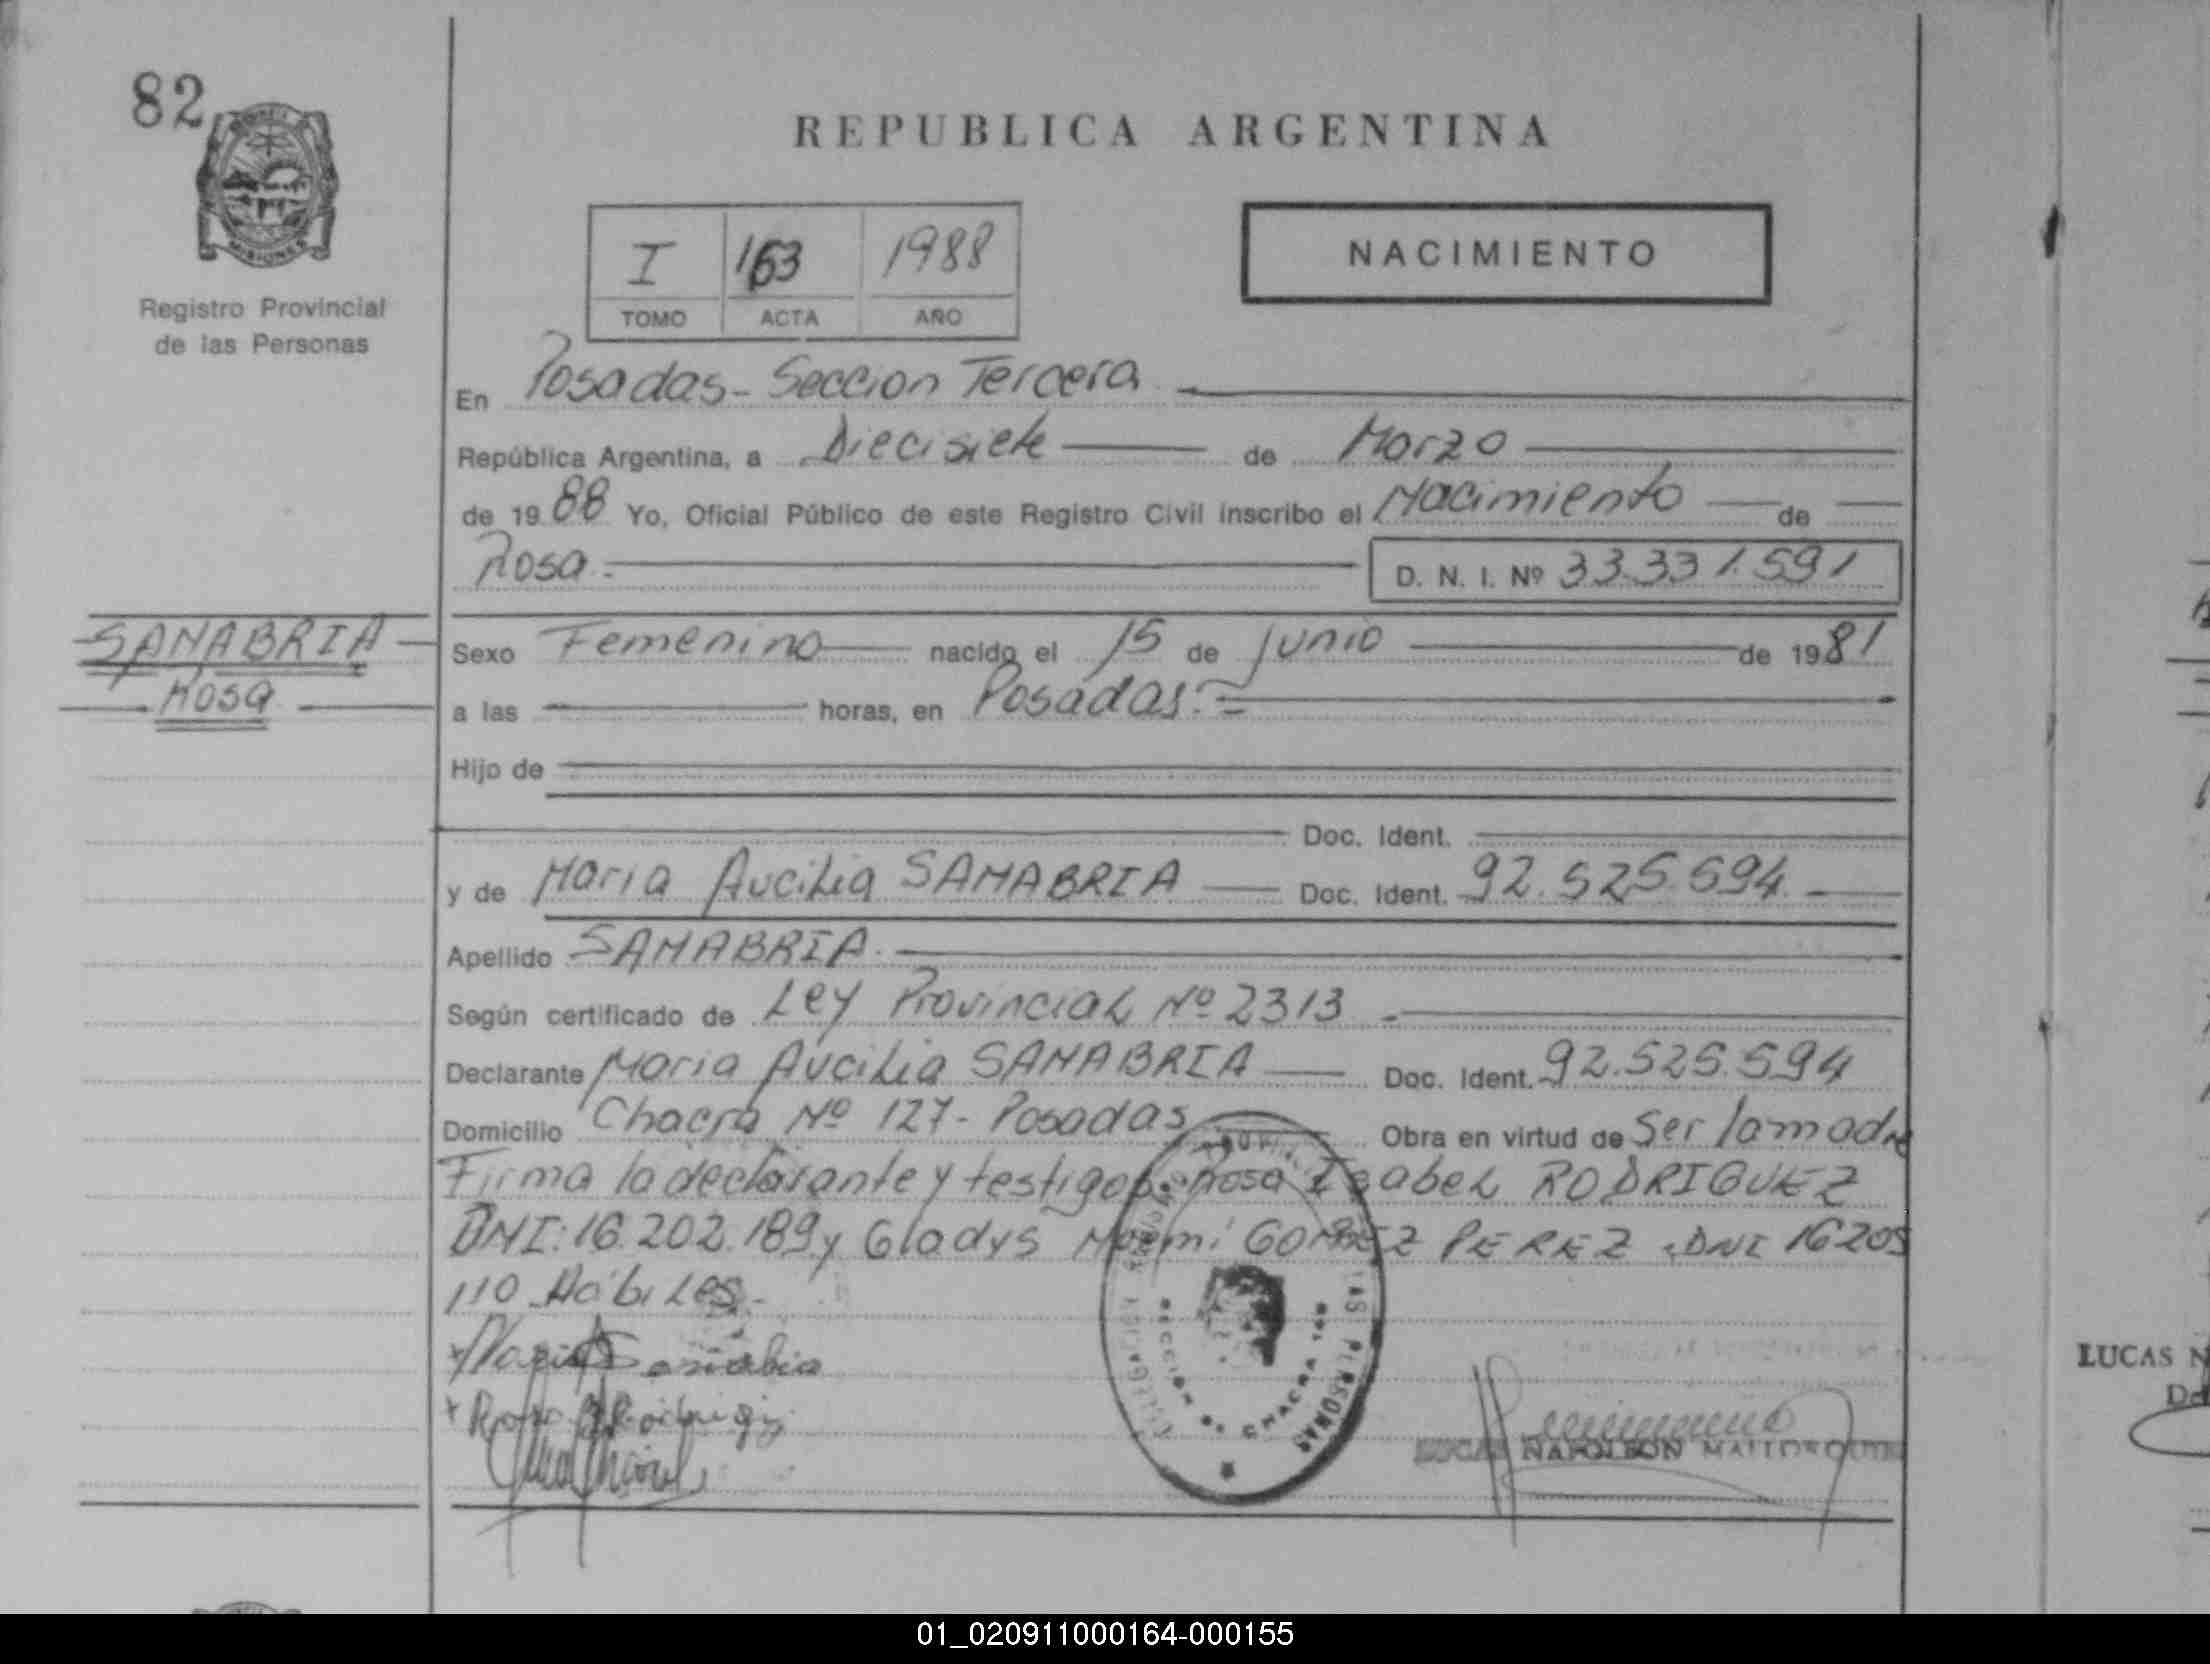 82
MISIONES
Registro Provincial
de las Personas
REPUBLICA ARGENTINA
I 163 1988
TOMO ACTA AÑO
NACIMIENTO
En Posadas - Seccion Tercera
República Argentina, a Diecisiete de Marzo
de 19 88 Yo, Oficial Público de este Registro Civil inscribo el Nacimiento de
Rosa.- D. N. I. Nº 33.331.591
SANABRIA
Rosa
Sexo Femenino nacido el 15 de Junio de 19 81
a las horas, en Posadas.=
Hijo de
Doc. Ident.
y de Maria Aucilia SANABRIA Doc. Ident. 92.525.594
Apellido SANABRIA.
Según certificado de Ley Provincial Nº 2313.-
Declarante Maria Aucilia SANABRIA Doc. Ident. 92.525.594
Domicilio Chacra Nº 127- Posadas Obra en virtud de Ser la madre
Firma la declarante y testigos: Rosa Isabel RODRIGUEZ
DNI: 16.202.189 y Gladys Noemi GOMEZ PEREZ, DNI 16205
110 Hábiles.-
LAS PERSONAS
CHACRA
LUCAS NAPOLEON MALLORQUIN
LUCAS N
De
01_020911000164-000155